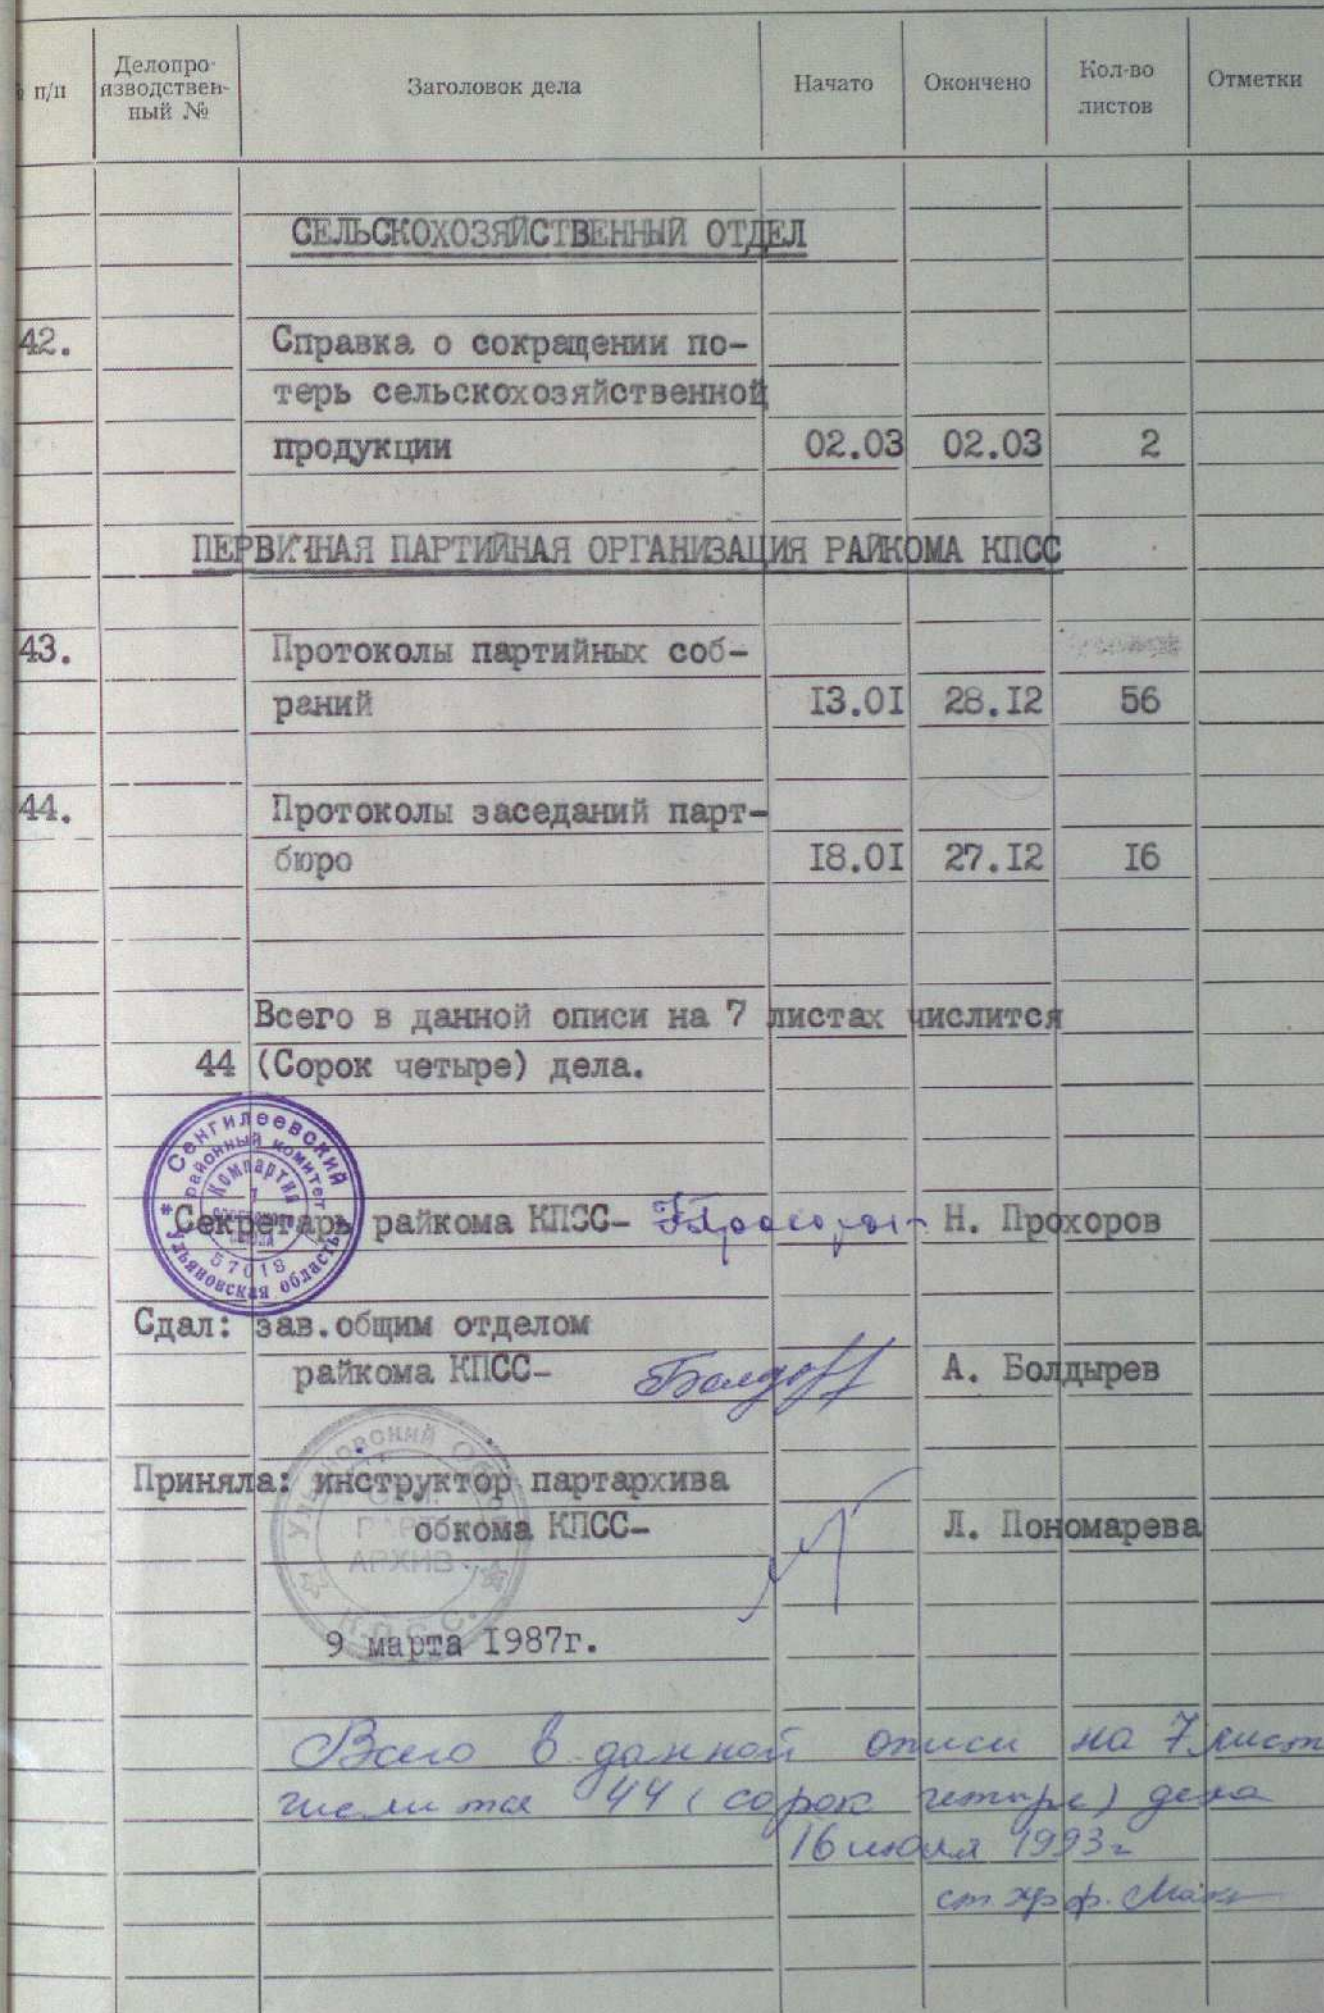 п/п
Делопро-
изводствен-
ный №
Заголовок дела
Начато
Окончено
Кол-во
листов
Отметки
СЕЛЬСКОХОЗЯЙСТВЕННЫЙ ОТДЕЛ
42. Справка о сокращении по-
терь сельскохозяйственной
продукции 02.03 02.03 2
ПЕРВИЧНАЯ ПАРТИЙНАЯ ОРГАНИЗАЦИЯ РАЙКОМА КПСС
43. Протоколы партийных соб-
раний I3.0I 28.I2 56
44. Протоколы заседаний парт-
бюро I8.0I 27.I2 I6
Всего в данной описи на 7 листах числится
44 (Сорок четыре) дела.
Сенгилеевский
районный комитет
Компартия
57018
* Ульяновская область
Секретарь райкома КПСС- Н. Прохоров
Сдал: зав.общим отделом
райкома КПСС- А. Болдырев
Приняла: инструктор партархива
обкома КПСС- Л. Пономарева
АРХИВ
КПСС
9 марта I987г.
Всего в данной описи на 7 лист
числится 44 (сорок четыре) дела
16 июля 1993г
ст. хр. ф.